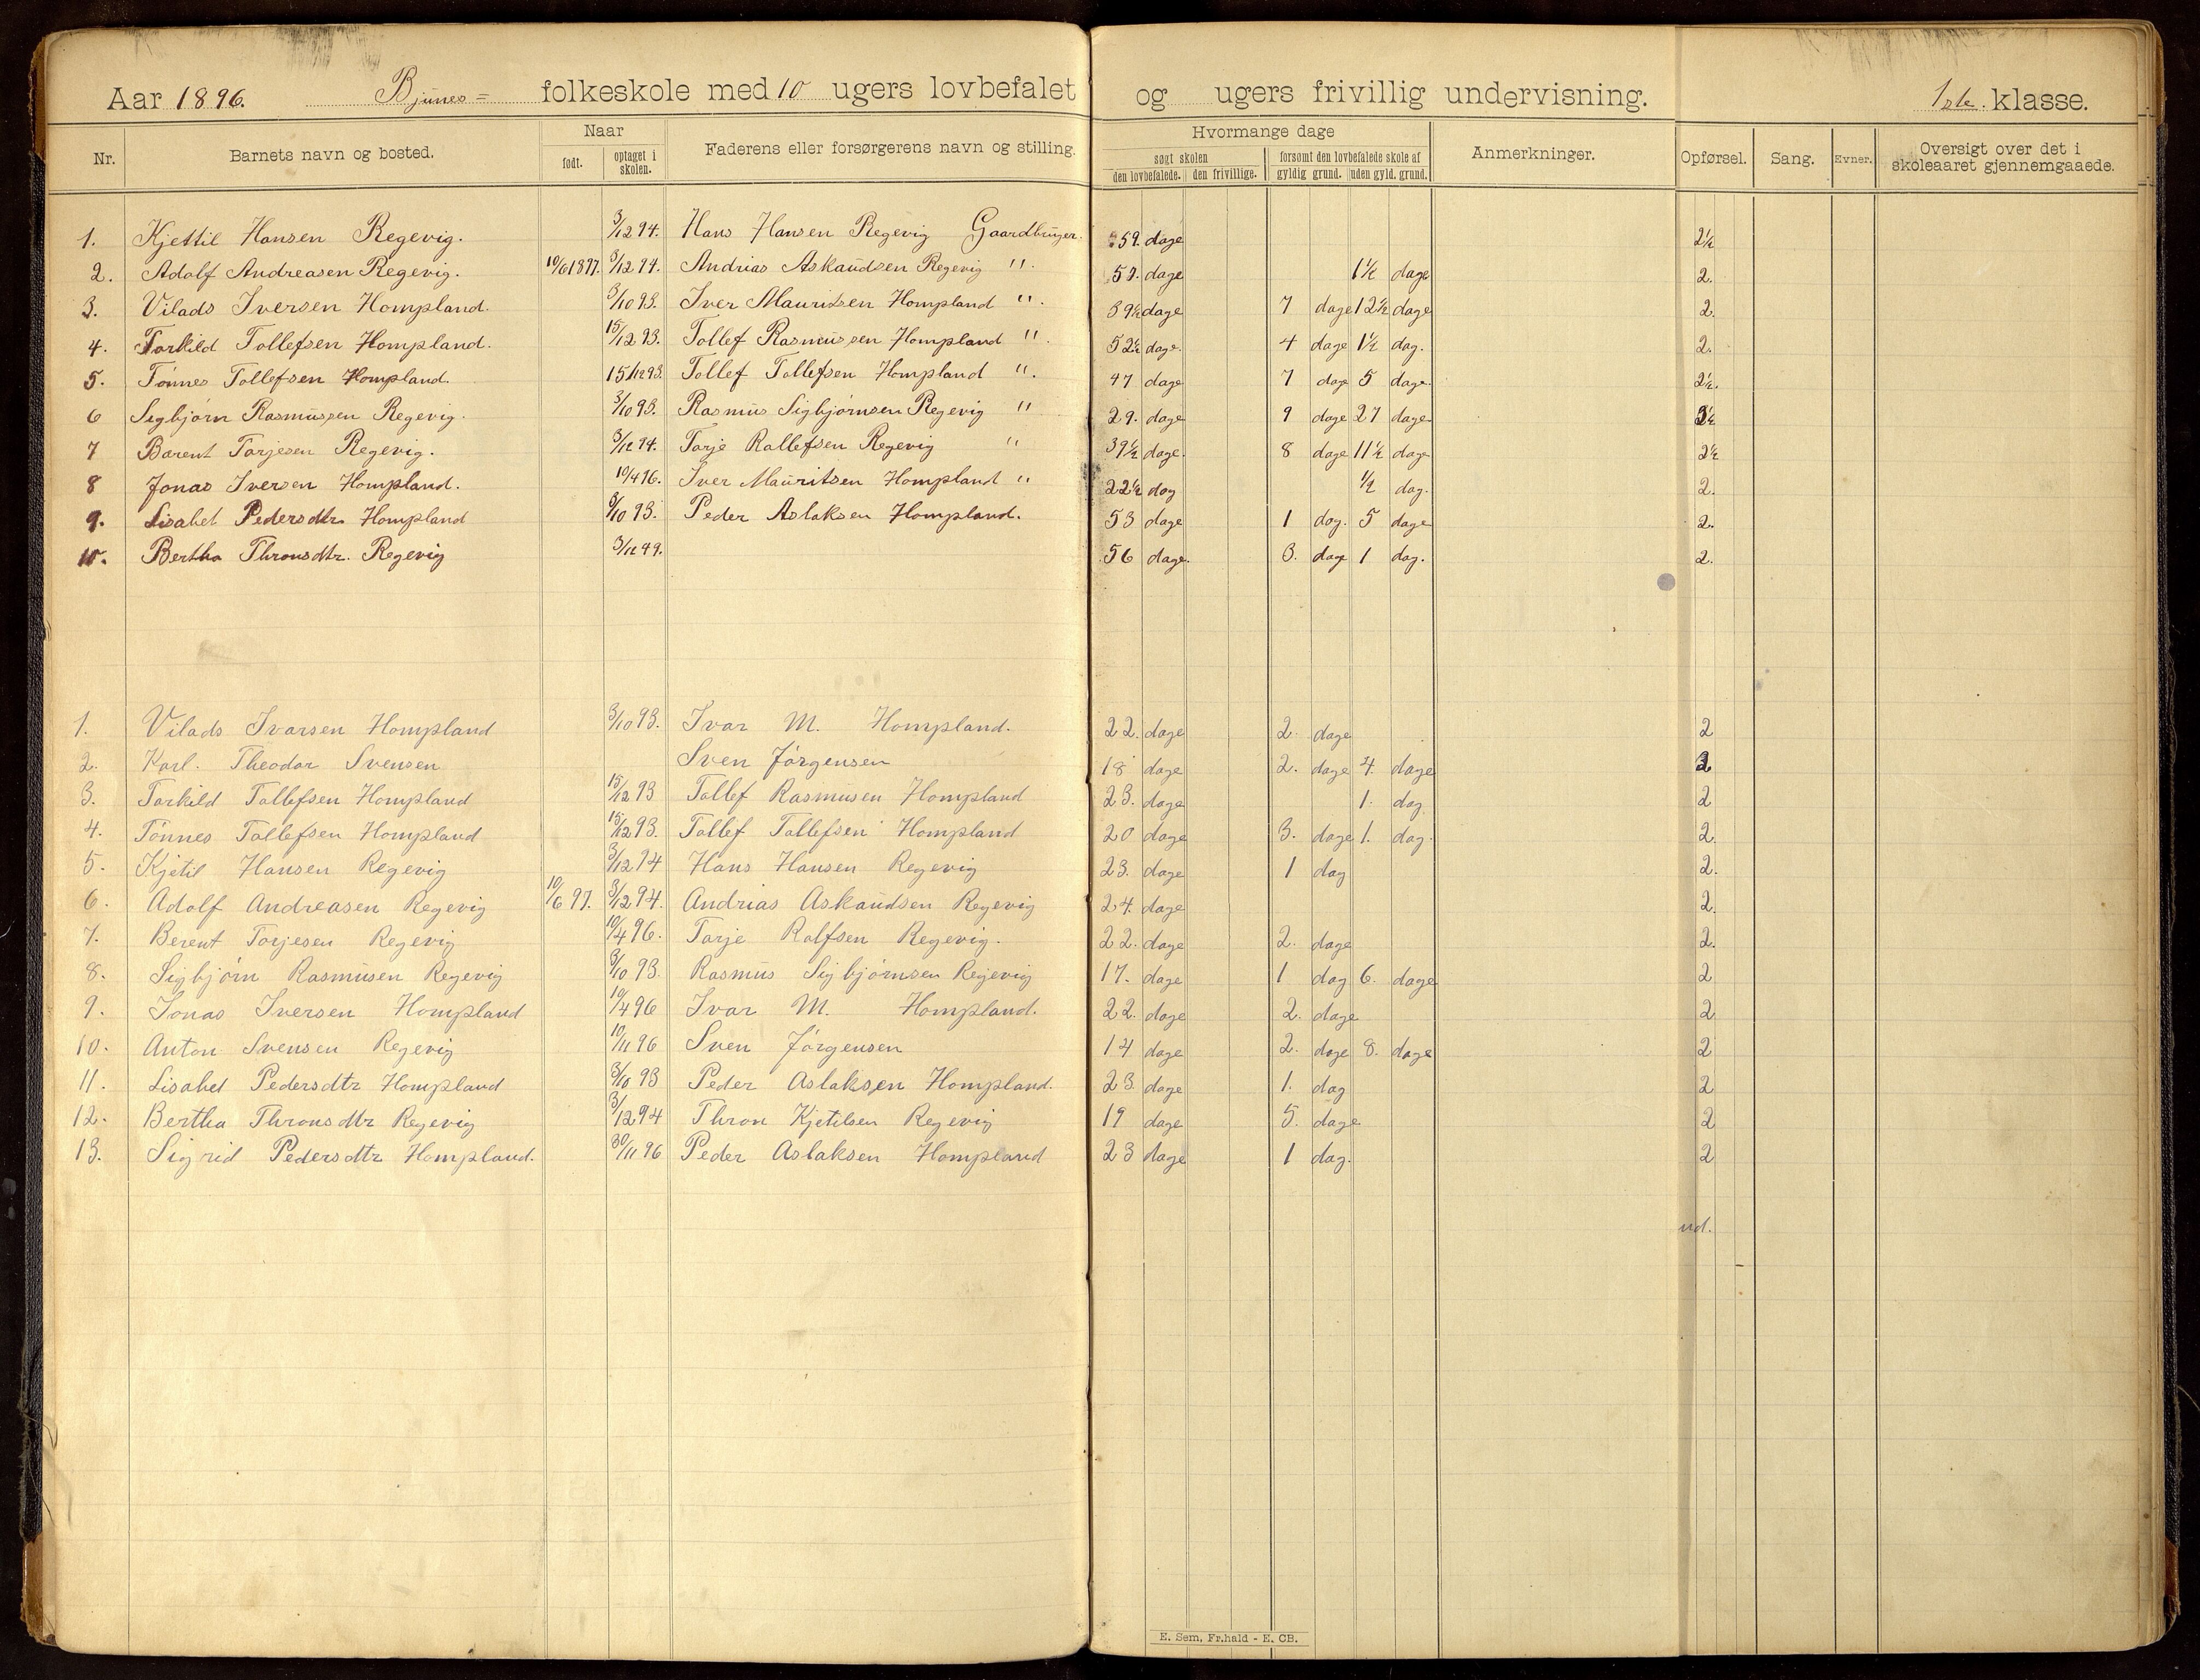 Aar 1896. Bjunes= folkeskole med 10 ugers lovbefalet og ugers frivillig undervisning. 1ste. klasse.
Nr. Barnets navn og bosted. Naar født. optaget i skolen. Faderens eller forsørgerens navn og stilling. Hvormange dage søgt skolen den lovbefalede. den frivillige. forsømt den lovbefalede skole af gyldig grund. uden gyld. grund. Anmerkninger. Opførsel. Sang. Evner. Oversigt over det i skoleaaret gjennemgaaede.
1. Kjettil Hansen Regevig. 3/12 94. Hans Hansen Regevig Gaardbruger. 59. dage 2½
2. Adolf Andreasen Regevig. 10/6 1897. 3/12 94. Andrias Askaudsen Regevig ". 59. dage 1½ dage 2.
3. Vilads Iversen Hompland. 3/10 93. Iver Mauritsen Hompland ". 39½ dage 7 dage 12½ dage 2.
4. Torkild Tollefsen Hompland. 15/12 93. Tollef Rasmussen Hompland ". 52½ dage. 4 dage 1½ dag. 2.
5. Tønnes Tollefsen Hompland. 15/12 93. Tollef Tollefsen Hompland ". 47 dage 7 dage 5 dage. 2½.
6 Sigbjørn Rasmussen Regevig. 3/10 93. Rasmus Sigbjørnsen Regevig " 29. dage 9 dage 27 dage 3½
7 Barent Torjesen Regevig. 3/12 94. Torje Rollefsen Regevig " 39½ dage. 8 dage 11½ dage 2½
8 Jonas Iversen Hompland. 10/4 96. Iver Mauritsen Hompland " 22½ dag ½ dag. 2.
9. Lisabet Pedersdtr. Hompland 3/10 93. Peder Aslaksen Hompland. 53 dage 1 dag. 5 dage 2.
10. Bertha Thronsdtr. Regevig 3/12 94. 56 dage. 3. dage 1 dag. 2.
1. Vilads Ivarsen Hompland 3/10 93. Ivar M. Hompland. 22. dage 2. dage 2
2. Karl. Theodor Svensen Sven Jørgensen 18 dage 2. dage 4. dage 2
3. Torkild Tollefsen Hompland 15/12 93 Tollef Rasmusen Hompland 23. dage 1. dag 2
4. Tønnes Tollefsen Hompland 15/12 93. Tollef Tollefsen Hompland 20 dage 3. dage 1. dag. 2.
5. Kjetil Hansen Regevig 3/12 94 Hans Hansen Regevig 23. dage 1 dag 2.
6. Adolf Andreasen Regevig 10/6 97. 3/12 94. Andrias Askaudsen Regevig 24. dage 2.
7. Berent Torjesen Regevig 10/4 96. Torje Rolfsen Regevig. 22. dage 2. dage 2.
8. Sigbjørn Rasmusen Regevig 3/10 93. Rasmus Sigbjørnsen Regevig 17. dage 1 dag 6. dage 2
9. Jonas Iversen Hompland 10/4 96 Ivar M. Hompland. 22. dage 2. dage 2
10. Anton Svensen Regevig 10/11 96 Sven Jørgensen 14 dage 2. dage 8. dage 2
11. Lisabet Pedersdtr Hompland 3/10 93 Peder Aslaksen Hompland. 23. dage 1. dag 2
12. Bertha Thronsdtr Regevig 3/12 94 Thron Kjetilsen Regevig 19 dage 5. dage 2
13. Sigrid Pedersdtr Hompland. 30/11 96 Peder Aslaksen Hompland 23 dage 1 dag. 2
ud.
E. Sem, Fr.hald - E. CB.